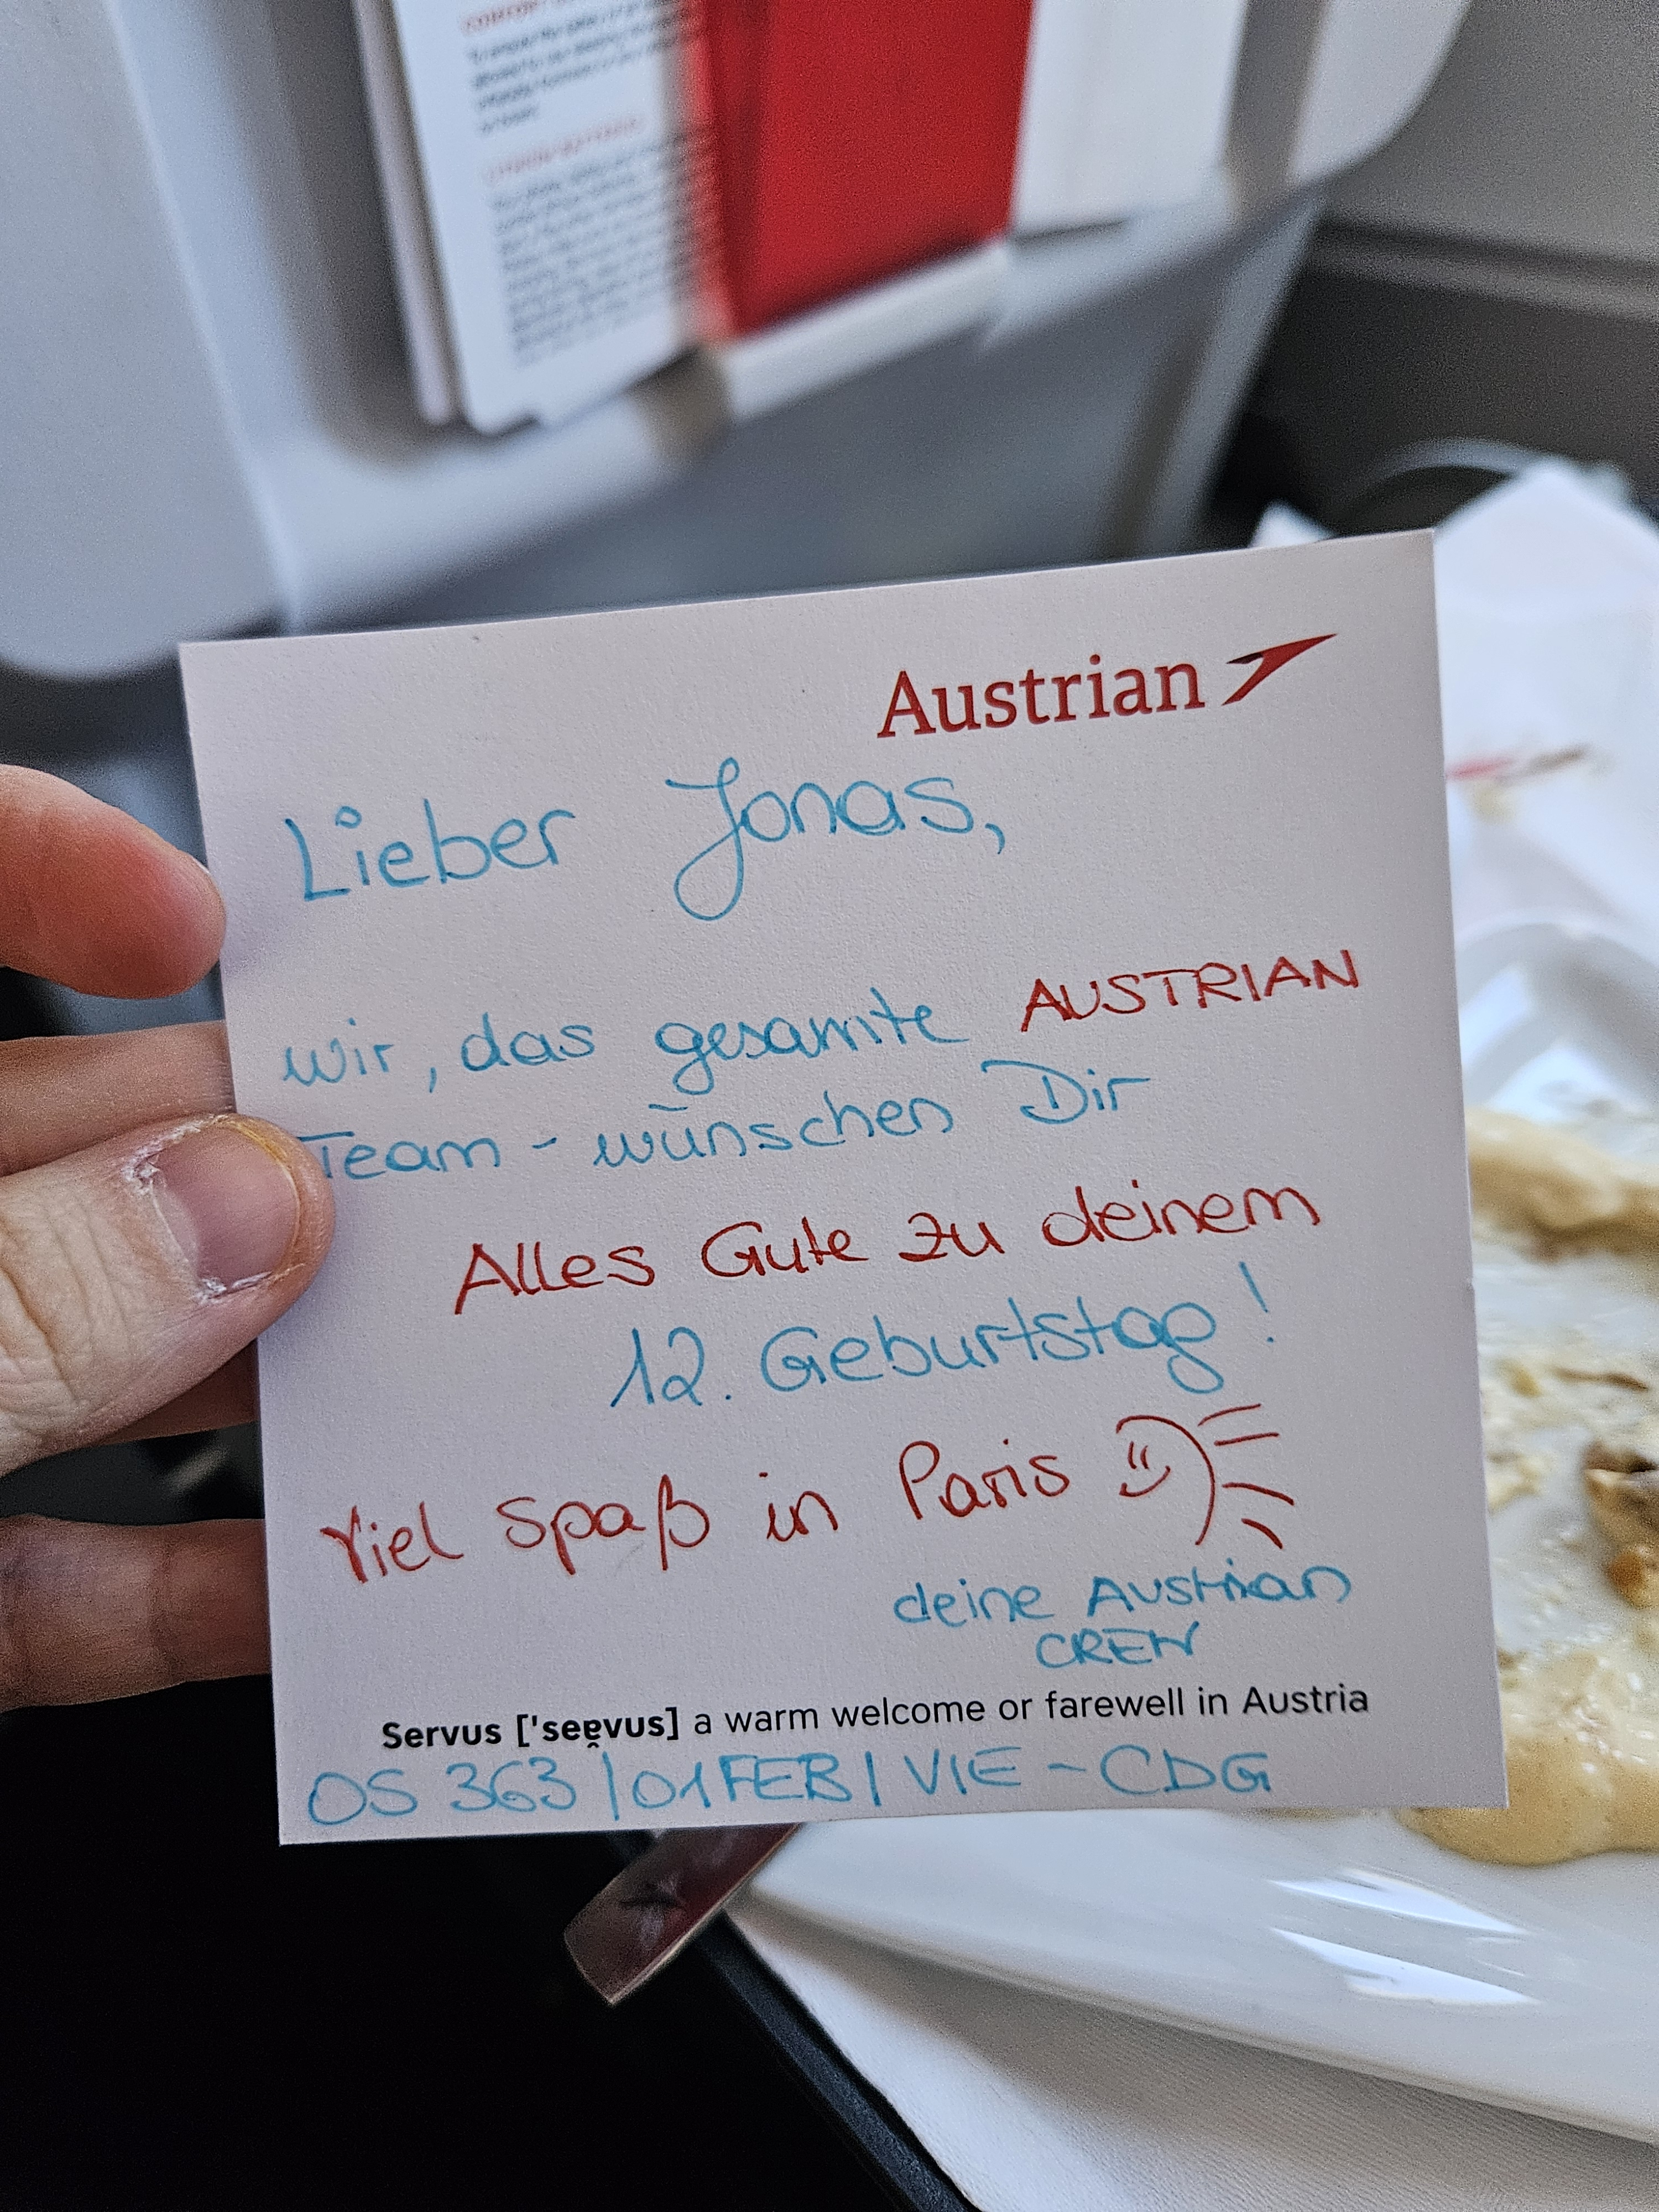 Austrian
Lieber Jonas,
wir, das gesamte AUSTRIAN
Team - wünschen Dir
Alles Gute zu deinem
12. Geburtstag!
Viel Spaß in Paris
deine Austrian
CREW
Servus ['seɐ̯vus] a warm welcome or farewell in Austria
OS 363 | 01FEB | VIE - CDG